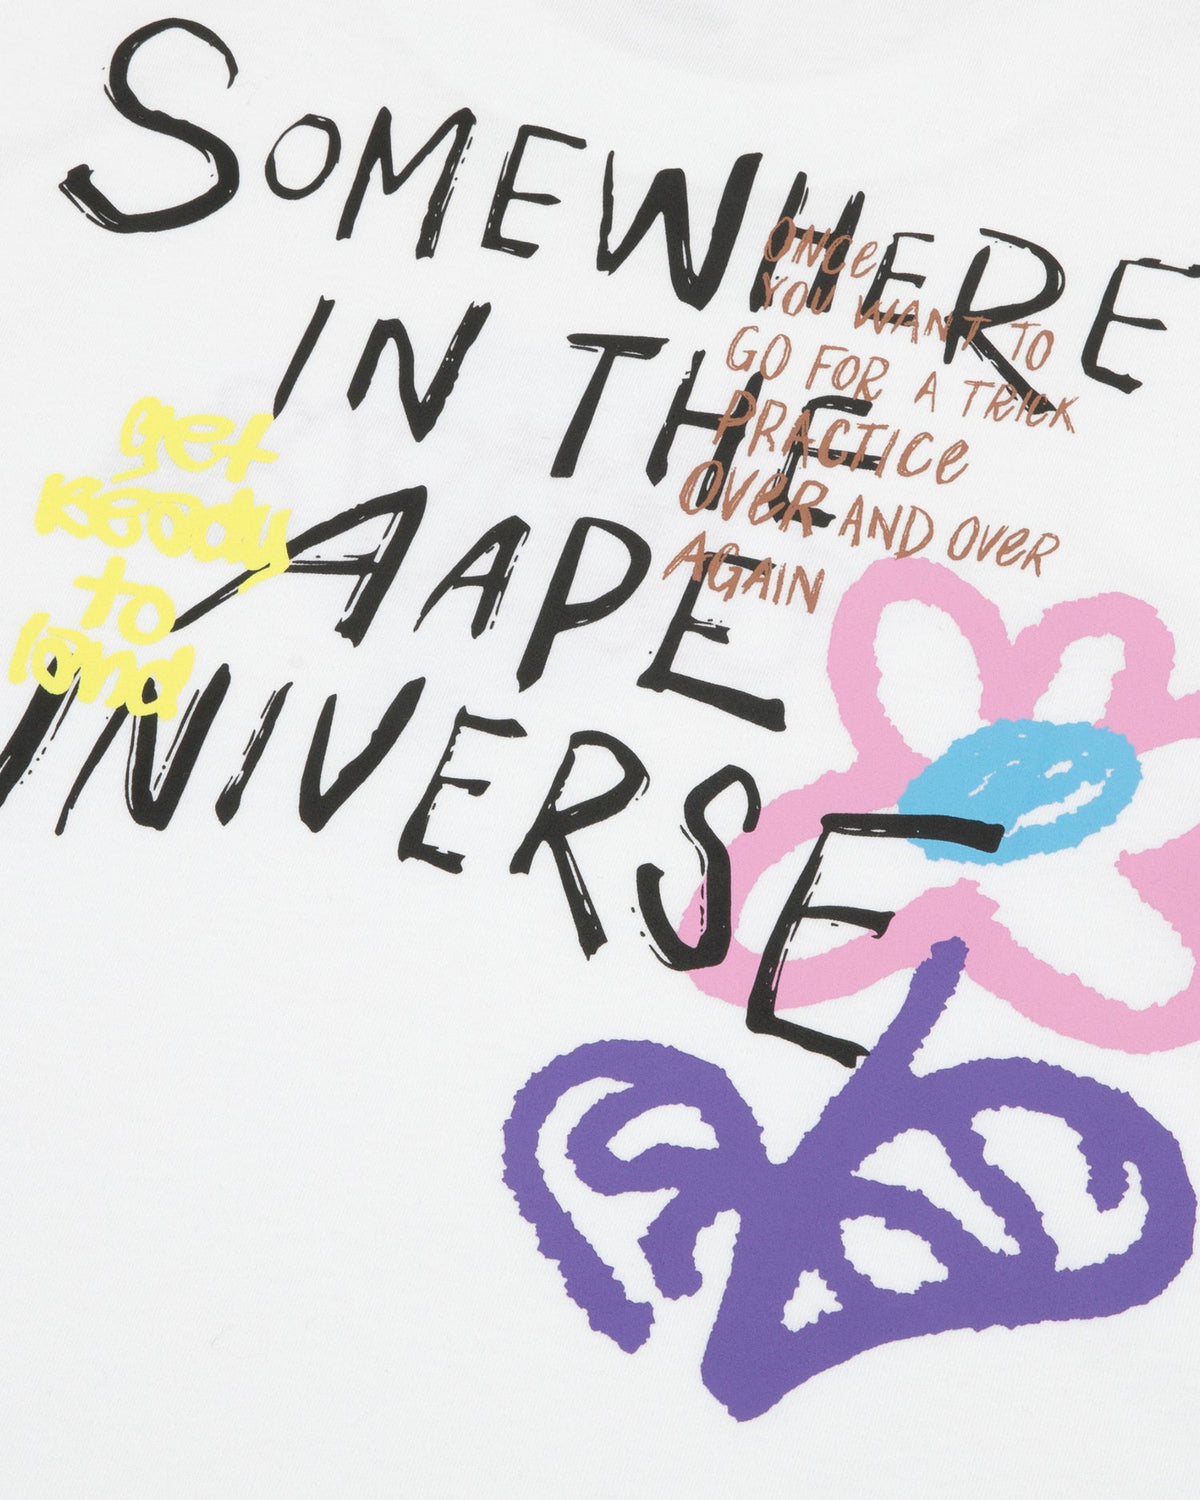 SOMEWHERE
IN THE
AAPE
UNIVERSE
ONCE
YOU WANT TO
GO FOR A TRICK
PRACTICE
OVER AND OVER
AGAIN
get
Ready
to
land